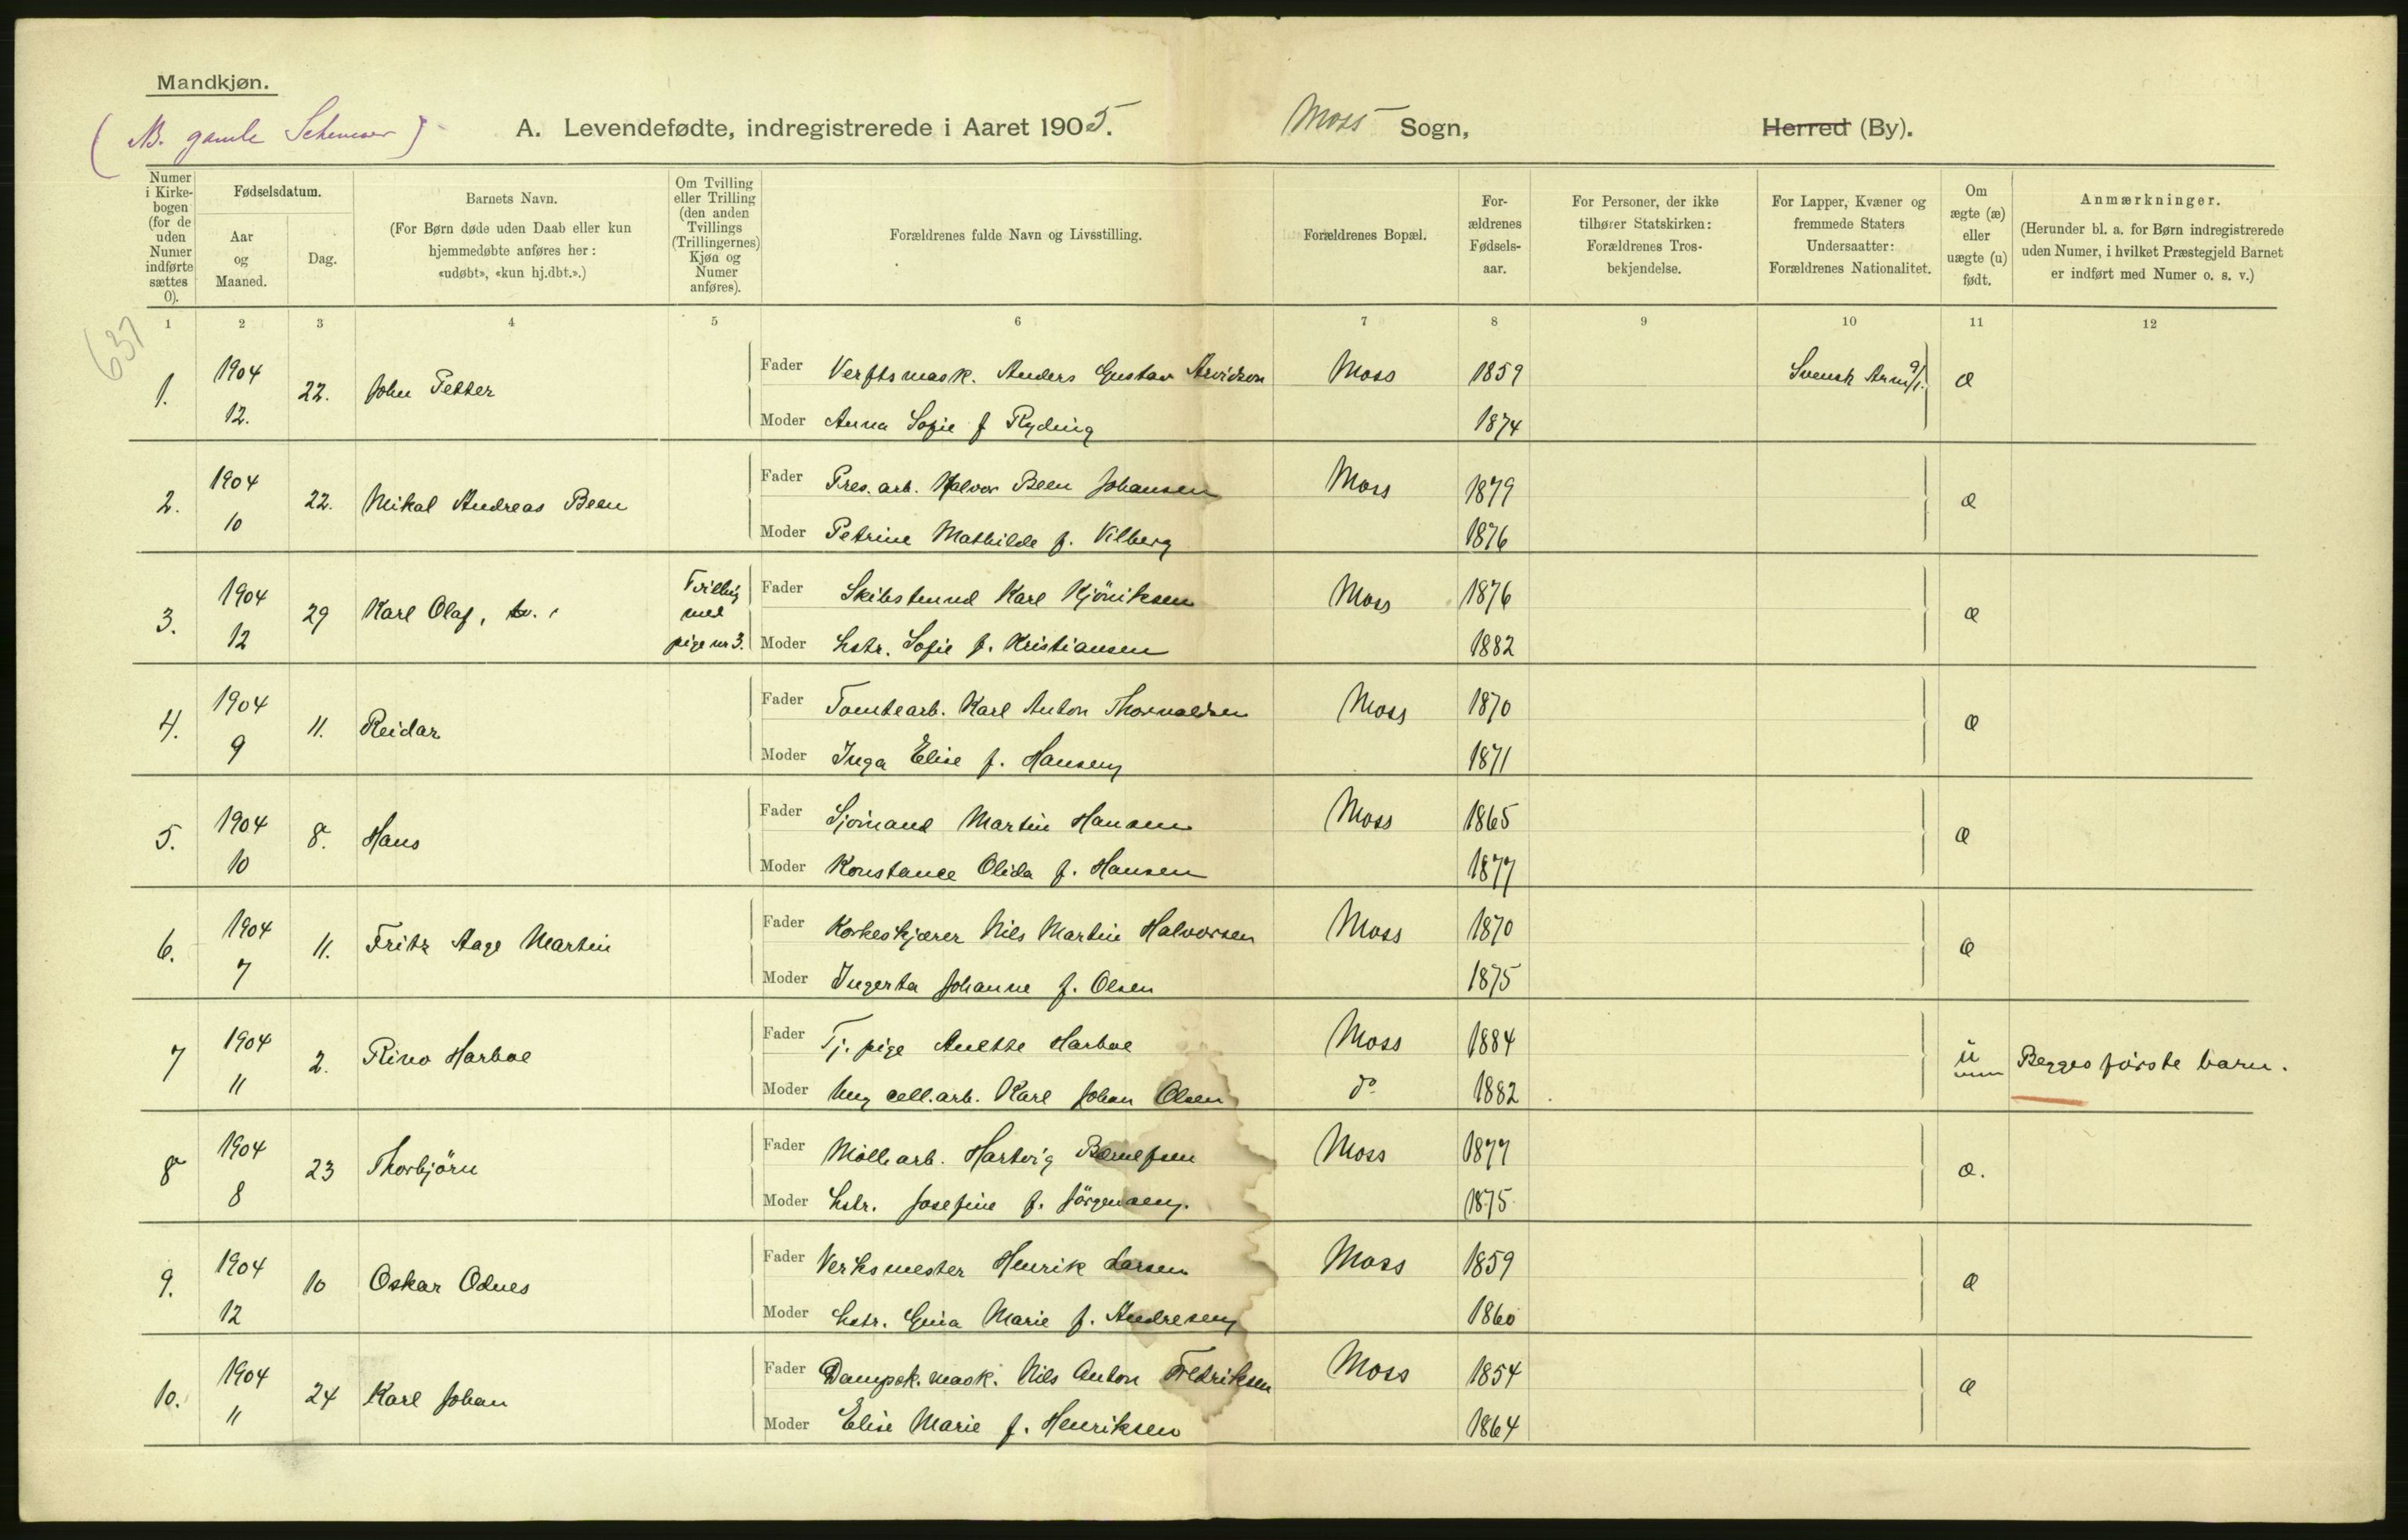 Mandkjøn.
(NB. gamle Schemaer)
A. Levendefødte, indregistrerede i Aaret 1905. Moss Sogn, Herred (By).
Numer i Kirkebogen (for de uden Numer indførte sættes 0).
Fødselsdatum.
Aar og Maaned.
Dag.
Barnets Navn.
(For Børn døde uden Daab eller kun hjemmedøbte anføres her: «udøbt», «kun hj.dbt.».)
Om Tvilling eller Trilling (den anden Tvillings (Trillingernes) Kjøn og Numer anføres).
Forældrenes fulde Navn og Livsstilling.
Forældrenes Bopæl.
Forældrenes Fødselsaar.
For Personer, der ikke tilhører Statskirken: Forældrenes Trosbekjendelse.
For Lapper, Kvæner og fremmede Staters Undersaatter: Forældrenes Nationalitet.
Om ægte (æ) eller uægte (u) født.
Anmærkninger.
(Herunder bl. a. for Børn indregistrerede uden Numer, i hvilket Præstegjeld Barnet er indført med Numer o. s. v.)
1 2 3 4 5 6 7 8 9 10 11 12
637
1. 1904 12. 22. John Petter Fader Verftsmask. Anders Gustav Arvidson Moss 1859 Svensk æ
Moder Anna Sofie f Ryding 1874
2. 1904 10 22. Mikal Andreas Been Fader Pres. arb. Halvor Been Johansen Moss 1879 æ
Moder Petrine Mathilde f. Vilberg 1876
3. 1904 12 29 Karl Olaf, tv. Tvilling med pige nr 3. Fader Skibstmnd Karl Kjöniksen Moss 1876 æ
Moder hstr. Sofie f. Kristiansen 1882
4. 1904 9 11. Reidar Fader Tomtearb. Karl Anton Thorvaldsen Moss 1870 æ
Moder Inga Elise f. Hansen 1871
5. 1904 10 8. Hans Fader Sjömand Martin Hansen Moss 1865 æ
Moder Konstance Olida f. Hansen 1877
6. 1904 7 11. Fritz Aage Martin Fader Korkeskjærer Nils Martin Halvorsen Moss 1870 æ
Moder Ingerta Johanne f. Olsen 1875
7 1904 11 2. Rino Harboe Fader Tj. pige Anette Harboe Moss 1884 u Begges förste barn.
Moder Ung cell.arb. Karl Johan Olsen do 1882
8 1904 8 23 Thorbjörn Fader Möllearb. Hartvig Moss 1877 æ.
Moder hstr. Josefine f. Jörgensen. 1875
9. 1904 12 10 Oskar Odnes Fader Verksmester Henrik Larsen Moss 1859 æ
Moder hstr. Gina Marie f. Andresen 1860
10. 1904 11 24 Karl Johan Fader Dampsk. mask. Nils Anton Fredriksen Moss 1854 æ
Moder Elise Marie f. Henriksen 1864